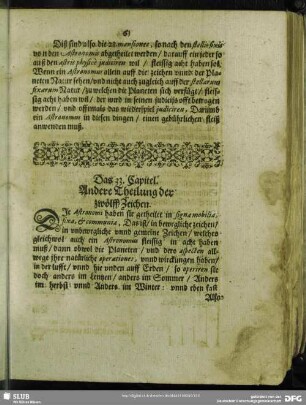 Diß sind also die 28. mansiones, so nach den stellis fixis
von den Astronomis abgetheilet werden / darauff ein jeder so
auß den astris physicè judiciren wil / fleissig acht haben sol.
Wenn ein Astronomus allein auff die zeichen vnnd der Pla-
neten Natur sehen / vnd nicht auch zugleich auff der stellarum
fixarum Natur / zu welchen die Planeten sich verfügt / fleis-
sig acht haben wil / der wird in seinen judicijs offt betrogen
werden / vnd offtmals das wiederspiel judiciren. Darumb
ein Astronomus in diesen dingen / einen gebührlichen fleiß
anwenden muß.
Das 33. Capitel.
Andere Theilung der
zwölff Zeichen.
DIe Astronomi haben sie getheilet in signa mobilia,
fixa, & communia, Das ist / in bewegliche zeichen /
in vnbewegliche vnnd gemeine Zeichen / welches
gleichwol auch ein Astronomus fleissig in acht haben
muß / dann obwol die Planeten / vnd ihre aspecten all-
wege ihre natürliche operationes, vnnd wirckungen haben /
in der lufft / vnnd hie vnden auff Erden / so operiren sie
doch anders im Lentzen / anders im Sommer / Anders
im herbst vnnd Anders im Winter: vnnd eben fast
Also
SLUB
DFG